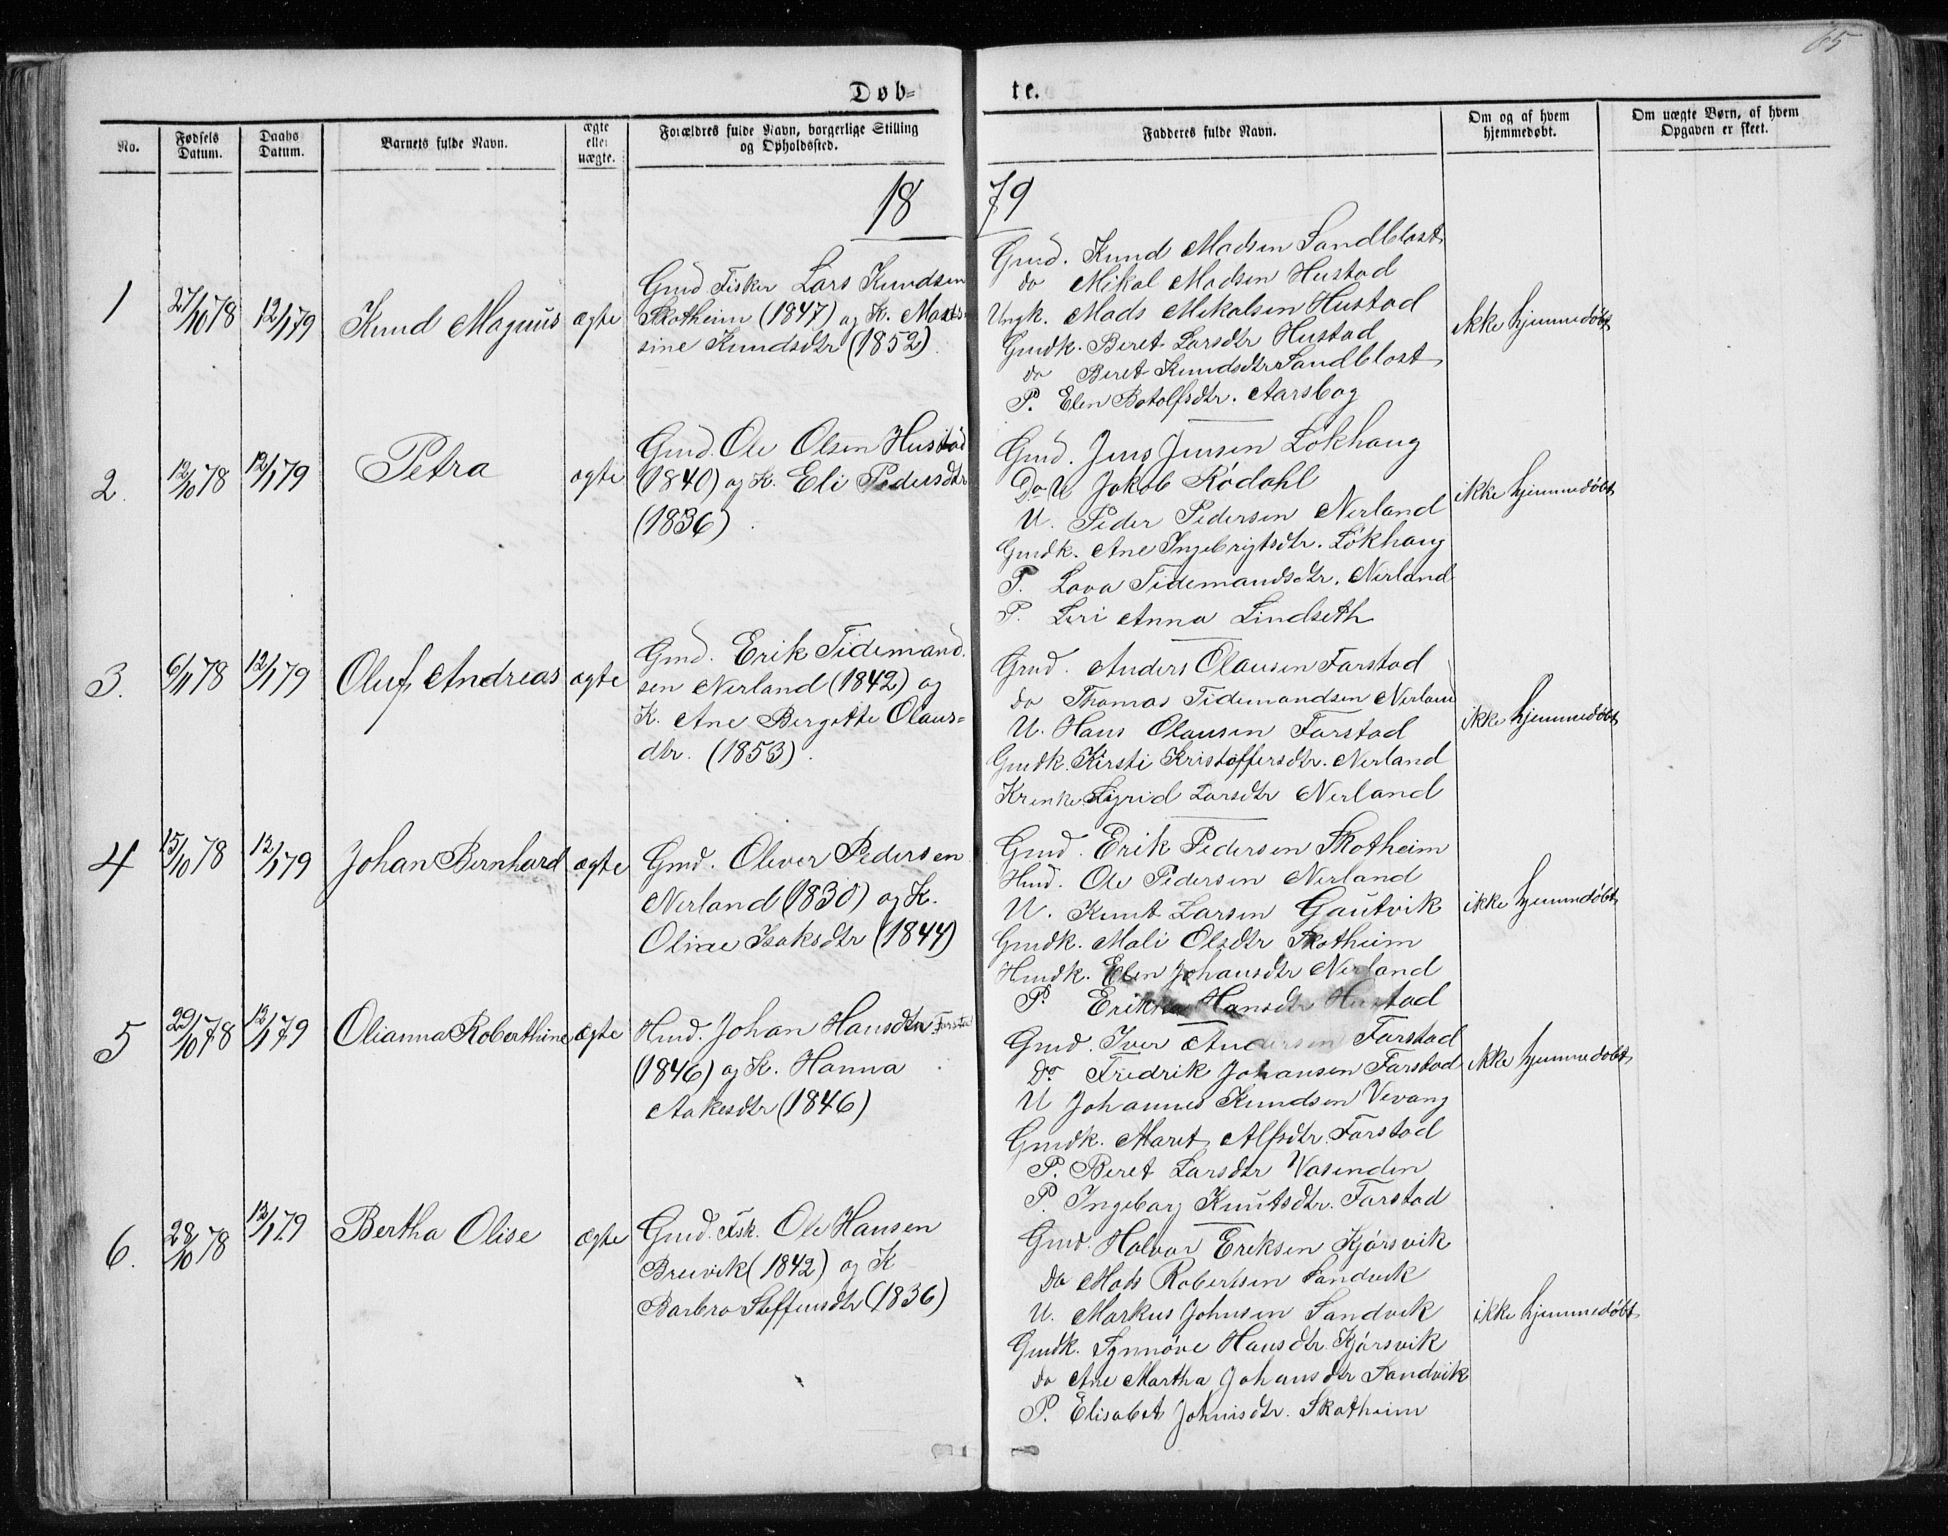 65
Døb=te.
No.
Fødsels Datum.
Daabs Datum.
Barnets fulde Navn.
ægte eller uægte.
Forældres fulde Navn, borgerlige Stilling og Opholdssted.
Fadderes fulde Navn.
Om og af hvem hjemmedøbt.
Om uægte Børn, af hvem Opgaven er skeet.
1879
1
27/10 78
12/1 79
Knud Magnus
ægte
Gmd Fisker Lars Knudsen
Skotheim (1847) og K. Mad
sine Knudsdtr (1852).
Gmd. Knud Madsen Sandblost
do Mikal Madsen Hustad
Ungk. Mads Mikalsen Hustad
Gmdk. Beret Larsdtr Hustad
do Beret Knudsdtr Sandblost
P. Elen Botolfsdtr. Aarsbog
ikke hjemmedøbt
2.
12/10 78
12/1 79
Petra
ægte
Gmd. Ole Olsen Hustad
(1840) og K. Eli Pedersdtr
(1836).
Gmd. Jens Jensen Lökhaug
Do U Jakob Ródahl
U. Peder Pedersen Nerland
Gmdk. Ane Ingebrigtsdtr. Lökhaug
P. Lava Tidemandsdtr. Nerland
P. Seri Anna Lindseth
ikke hjemmedøbt
3.
6/11 78
12/1 79
Oluf Andreas
ægte
Gmd. Erik Tidemand
sen Nerland (1842) og
K. Ane Bergitte Olaus=
dtr. (1853).
Gmd. Anders Olausen Farstad
do Thomas Tidemandsen Nerland
U. Hans Olausen Farstad
Gmdk. Kirsti Kristoffersdtr. Nerland
Krenke Sigrid Larsdtr Nerland
ikke hjemmedøbt
4
15/10 78
12/1 79
Johan Bernhard
ægte
Gmd. Oliver Pedersen
Nerland (1830) og K.
Oline Isaksdtr (1844)
Gmd. Erik Pedersen Skotheim
Hmd. Ole Pedersen Nerland
U. Knut Larsen Gautvik
Gmdk. Mali Olsdtr Skotheim
Hmdk. Elen Johansdtr Nerland
P. Erikka Hansdtr Hustad
ikke hjemmedøbt
5
29/10 78
12/1 79
Olianna Roberthine
ægte
Hmd. Johan Hansdtr Farsta
(1846) og K. Hanna
Aakesdtr (1846)
Gmd. Iver Andersen Farstad
Do Fredrik Johansen Farstad
U Johannes Knudsen Vevang
Gmdk. Maret Alfsdtr. Farstad
P. Beret Larsdtr Vasenden
P. Ingeborg Knutsdtr. Farstad
ikke hjemmedøbt
6.
28/10 78
12/1 79
Bertha Olise
ægte
Gmd. Fsk. Ole Hansen
Breivik (1842) og K
Barbro Steffensdtr (1836)
Gmd. Halvor Eriksen Kjörsvik
do Mads Robertsen Sandvik
U. Markus Johnsen Sandvik
Gmdk. Synnöve Hansdtr. Kjörsvik
do Ane Martha Johansdtr Sandvik
P. Elisabet Johnisdtr. Skotheim
ikke hjemmedøbt